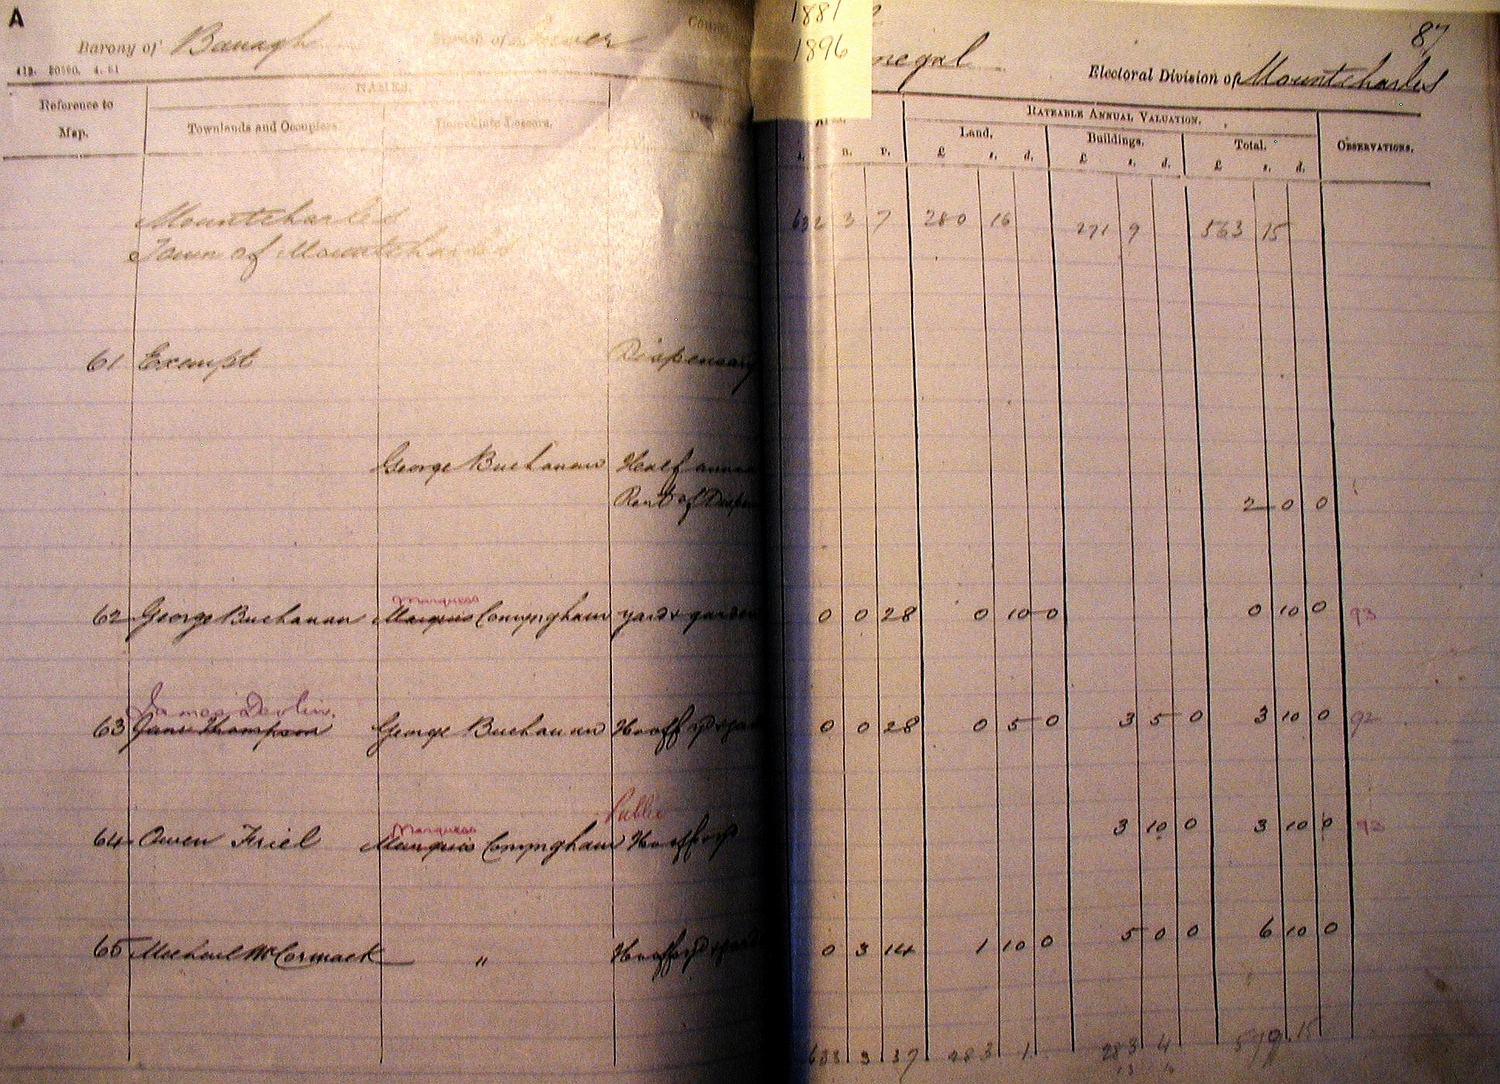 A
1881
1896
87
Barony of Banagh
Electoral Division of Mountcharles
412. 20580. 4. 81
NAMES.
Reference to
Map.
Townlands and Occupiers.
Immediate Lessors.
RATEABLE ANNUAL VALUATION.
Land. Buildings. Total. OBSERVATIONS.
R. P. £ s. d. £ s. d. £ s. d.
Mountcharles
Town of Mountcharles
632 3 7 280 16 271 9 563 15
61 Exempt Dispensary
George Buchanan Half
Rent of 2 0 0
Marquess
62 George Buchanan Marquis Conyngham yard & garden 0 0 28 0 10 0 0 10 0 93
James Devlin
63 Jane Thompson George Buchanan 0 0 28 0 5 0 3 5 0 3 10 0 92
Public
Marquess
64 Owen Friel Marquis Conyngham 3 10 0 3 10 0 93
65 Michael McCormack " 0 3 14 1 10 0 5 0 0 6 10 0
633 3 37 283 1 283 4